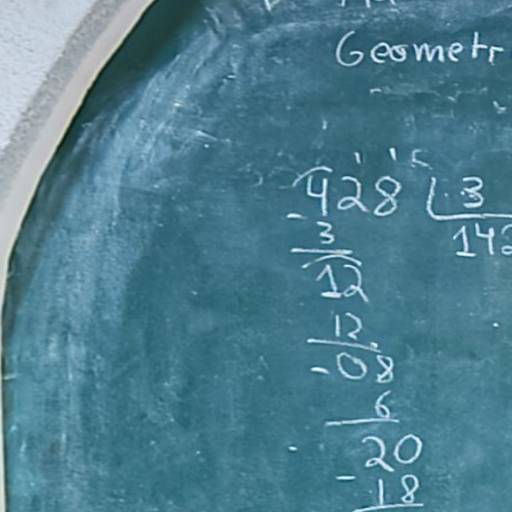 Geometr
428 3
142
- 3
12
12
- 08
6
20
- 18